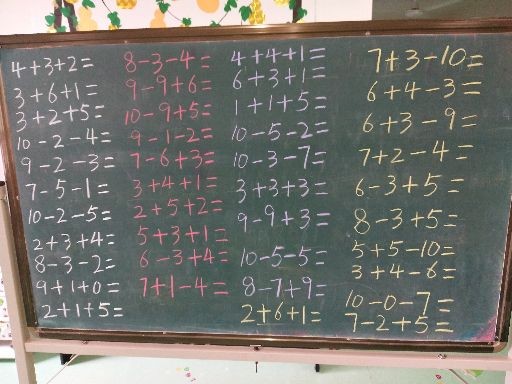 4+3+2=
3+6+1=
3+2+5=
10-2-4=
9-2-3=
7-5-1=
10-2-5=
2+3+4=
8-3-2=
9+1+0=
2+1+5=
8-3-4=
9-9+6=
10-9+5=
9-1-2=
7-6+3=
3+4+1=
2+5+2=
5+3+1=
6-3+4=
7+1-4=
4+4+1=
6+3+1=
1+1+5=
10-5-2=
10-3-7=
3+3+3=
9-9+3=
10-5-5=
8-7+9=
2+6+1=
7+3-10=
6+4-3=
6+3-9=
7+2-4=
6-3+5=
8-3+5=
5+5-10=
3+4-6=
10-0-7=
7-2+5=